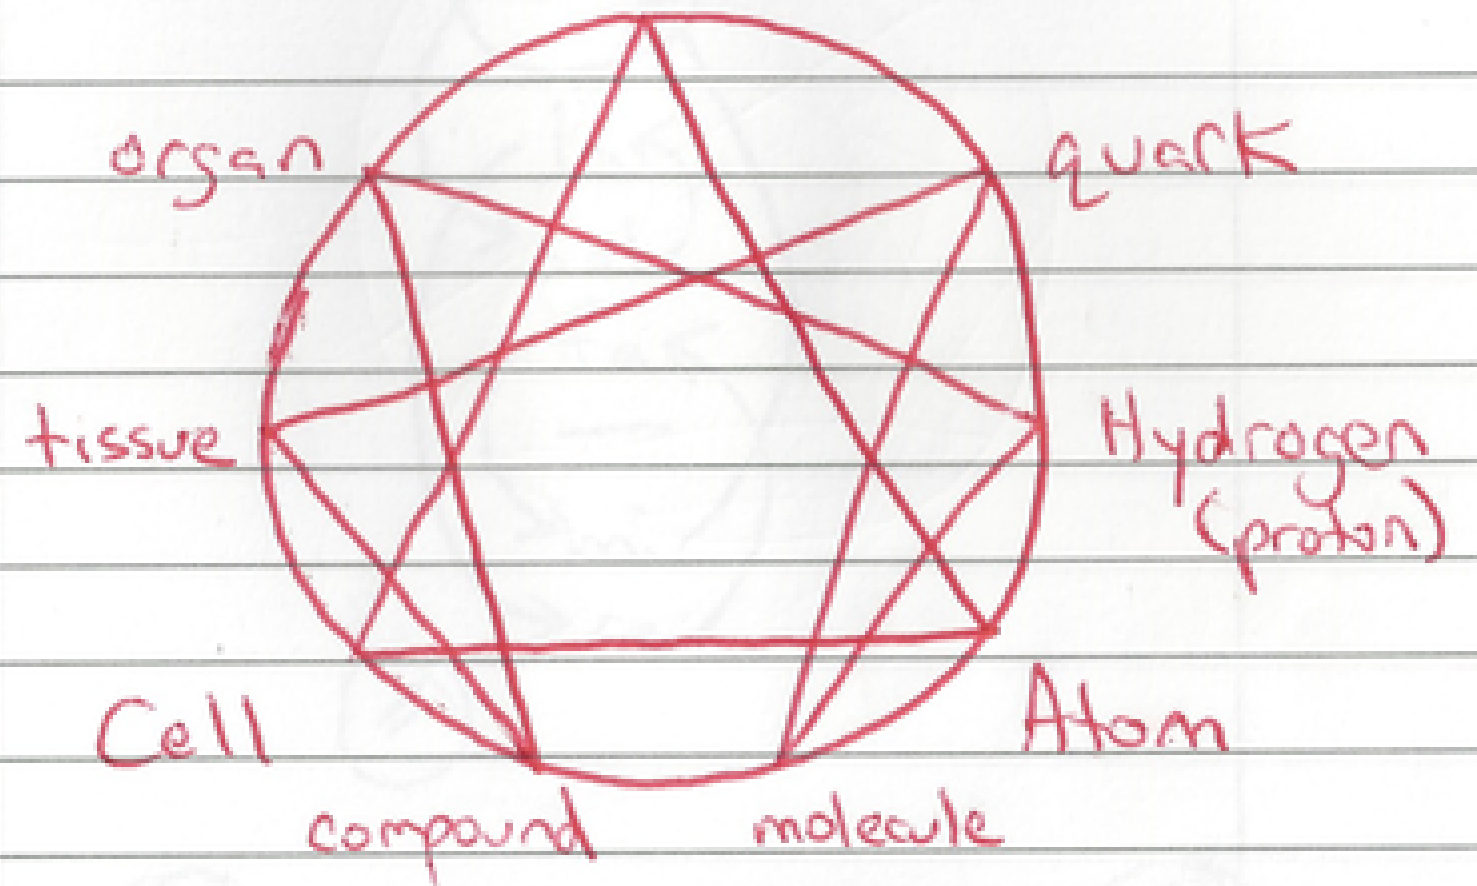 organ
quark
tissue
Hydrogen
(proton)
Cell
Atom
compound
molecule